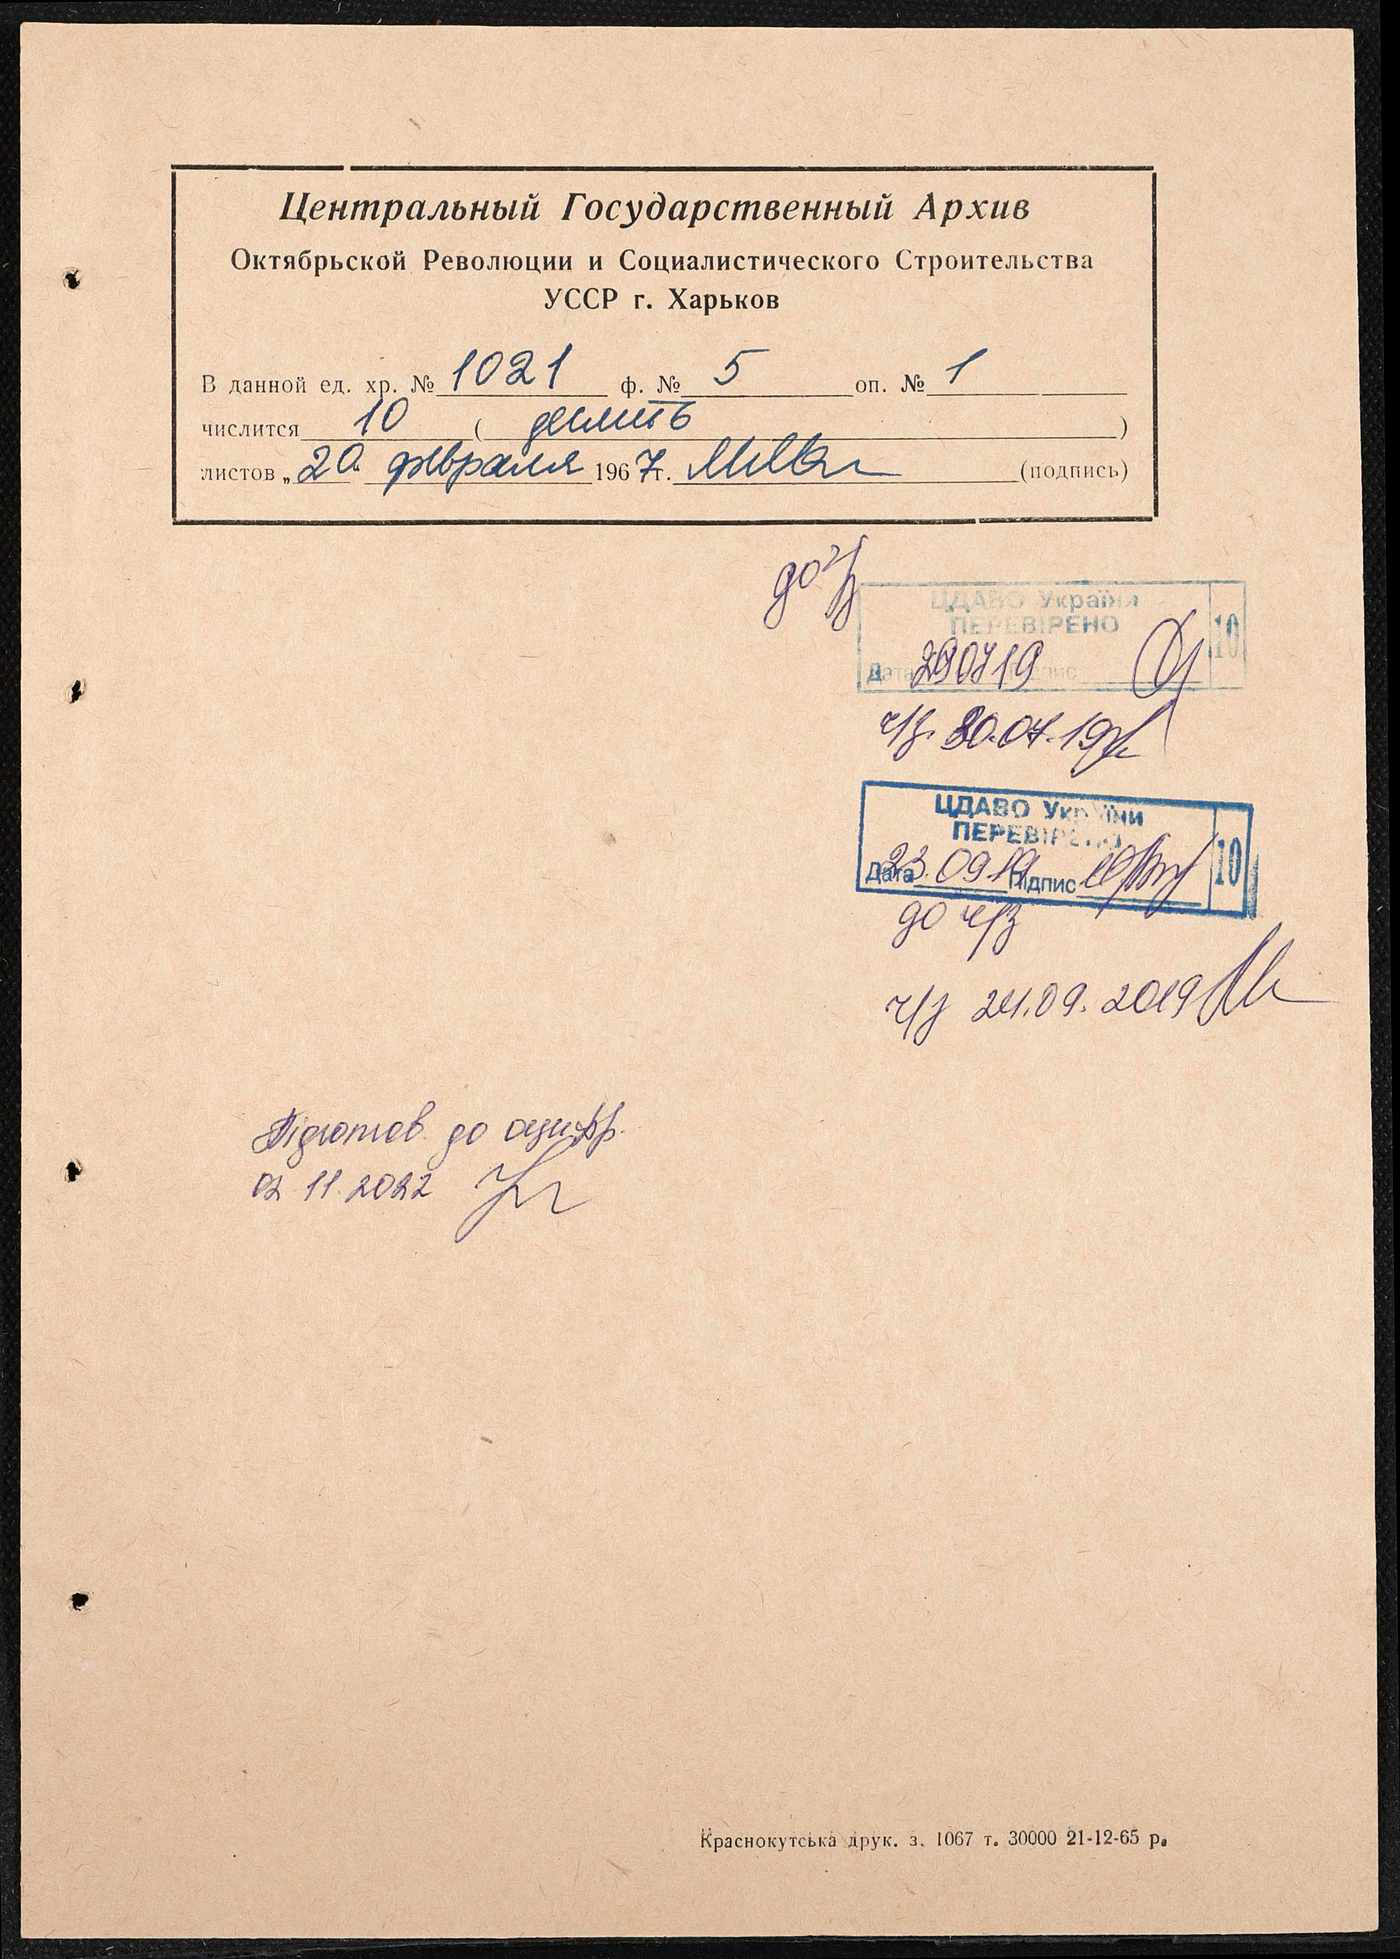 Центральный Государственный Архив
Октябрьской Революции и Социалистического Строительства
УССР г. Харьков
В данной ед. хр. № 1021 ф. № 5 оп. № 1
числится 10 ( десять )
листов „ 20 февраля 1967 г. (подпись)
до ч/з
ЦДАВО України
ПЕРЕВІРЕНО 10
Дата 290719 Підпис
ч/з. 30.07.19
ЦДАВО України
ПЕРЕВІРЕНО 10
Дата 23.09.19 Підпис
до ч/з
ч/з 24.09.2019
Підготов. до оцифр.
02 11.2022
Краснокутська друк. з. 1067 т. 30000 21-12-65 р.